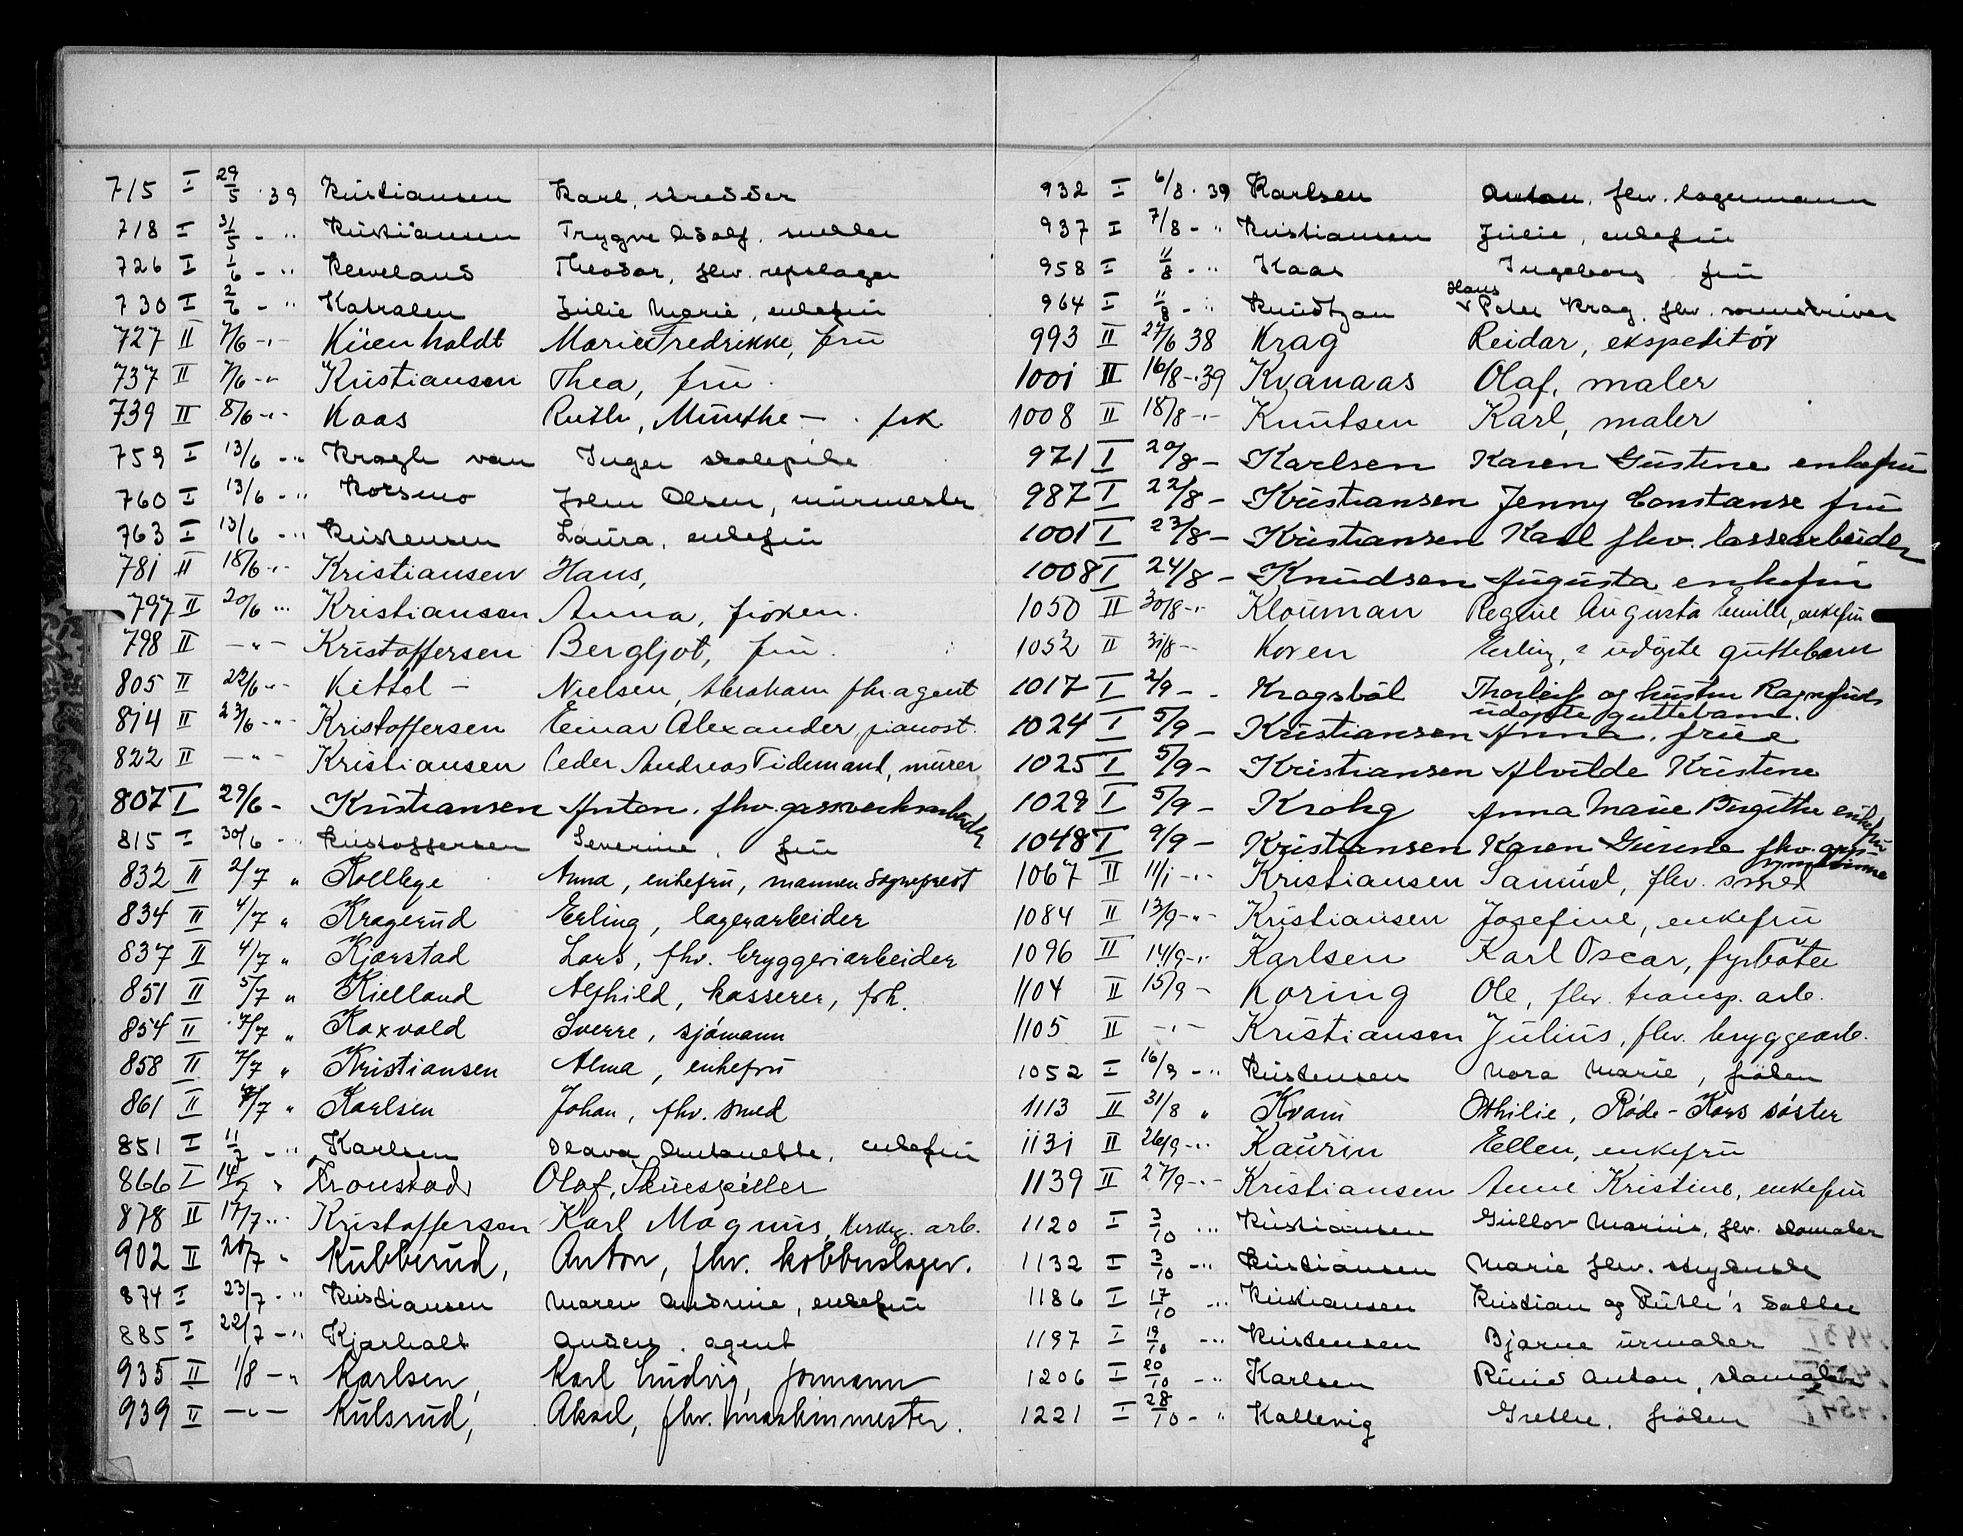 715 I 29/5 · 39 Kristiansen Karl, skredder
718 I 31/5 - " Kristiansen Trygve Adolf, snekker
726 I 1/6 - " Kleveland Theodor, fhv. repslager
730 I 2/6 - " Katralen Julie Marie, enkefru
727 II 7/6 - " Küenholdt Marie Fredrikke, fru
737 II 7/6 - " Kristiansen Thea, fru.
739 II 8/6 - " Kaas Ruth, Munthe - . frk
759 I 13/6 - " Kragh van Inger skolepike
760 I 13/6 - " Korsmo Joen Olsen, murmester
763 I 13/6 - " Kristensen Laura, enkefru
781 II 18/6 - " Kristiansen Hans,
797 II 20/6 - " Kristiansen Anna, frøken.
798 II - " - Kristoffersen Bergljot, fru.
805 II 22/6 - " Kittel - Nielsen, Abraham fhv. agent
814 II 23/6 - " Kristoffersen Einar Alexander, pianost.
822 II - " - Kristiansen Peder Andreas Tidemand, murer
807 I 29/6 - Kristiansen Anton. fhv. gassverksarbeider
815 I 30/6 - " Kristoffersen Severine, fru
832 II 2/7 " Kolbye Anna, enkefru, mannen Sogneprest
834 II 4/7 " Kragerud Erling, lagerarbeider
837 II 4/7 " Kjørstad Lars, fhv. bryggeriarbeider
851 II 5/7 " Kielland Alfhild, kasserer, frk.
854 II 7/7 " Roxvold Sverre, sjømann
858 II 7/7 " Kristiansen Alma, enkefru
861 II 8/7 " Karlsen Johan, fhv. smed
851 I 11/7 - " Karlsen Olava Antonette, enkefru
866 I 14/7 " Kronstad Olaf, Skuespiller
878 II 17/7 - " Kristoffersen Karl Magnus, Herdeg. arb.
902 II 20/7 " Kubberud, Anton, fhv. kobberslager.
874 I 23/7 - " Kristiansen Maren Andrine, enkefru
885 I 22/7 - " Kjærholt Anders. agent
935 II 1/8 - " Karlsen, Karl Ludvig, formann
939 II - " - Kulsrud, Aksel, fhv. maskinmester.
932 I 6/8 · 39 Karlsen Anton, fhv. lagermann
937 I 7/8 - " Kristiansen Julie, enkefru
958 I 11/8 - " Kaas Ingeborg fru
964 I 11/8 - " Knudtzon Hans Peter Krag, fhv. sorenskriver
993 II 27/6 38 Krag Reidar, ekspeditør
1001 II 16/8 - 39 Kvanaas Olaf, maler
1008 II 18/8 - " Knutsen Karl, maler
971 I 20/8 - Karlsen Karen Gustine enkefru
987 I 22/8 - Kristiansen Jenny Constanse fru
1001 I 23/8 - Kristiansen Karl fhv. lossearbeider
1008 I 24/8 - Knudsen Augusta enkefru
1050 II 30/8 - " Klouman Regine Augusta Emilie, enkefru
1052 II 31/8 - Koren Erling, s udøpte guttebarn
1017 I 2/9 - Kragsbøl Thorleif og hustru Ragnhilds udøpte guttebarn.
1024 I 5/9 - Kristiansen Anna. frue
1025 I 5/9 - Kristiansen Alvilde Kristine
1029 I 5/9 - Krohg Anna Marie Birgithe enkefru
1048 I 9/9 - Kristiansen Karen Gurine fhv.
1067 II 11/1 - " Kristiansen Samuel, fhv. smed
1084 II 13/9 - " Kristiansen Josefine, enkefru
1096 II 14/9 - " Karlsen Karl Oscar, fyrbøter
1104 II 15/9 - Koring Ole, fhv. transp. arb.
1105 II - " - Kristiansen Julius, fhv. bryggearb.
1052 I 16/9 - " Kristensen Nora Marie, frøken
1113 II 31/8 " Kvam Othilie, Røde-Kors søster
1131 II 26/9 - " Kaurin Ellen, enkefru
1139 II 27/9 - " Kristiansen Anne Kristine, enkefru
1120 I 3/10 - " Kristiansen Gullov Marius, fhv. skomaker
1132 I 3/10 - " Kristiansen Marie fhv. strykerske
1186 I 17/10 - " Kristiansen Kristian og Ruth's datter
1197 I 19/10 - " Kristensen Bjarne urmaker
1206 I 20/10 - " Karlsen Rinius Anton, skomaker
1221 I 28/10 - " Kallevig Grethe, frøken